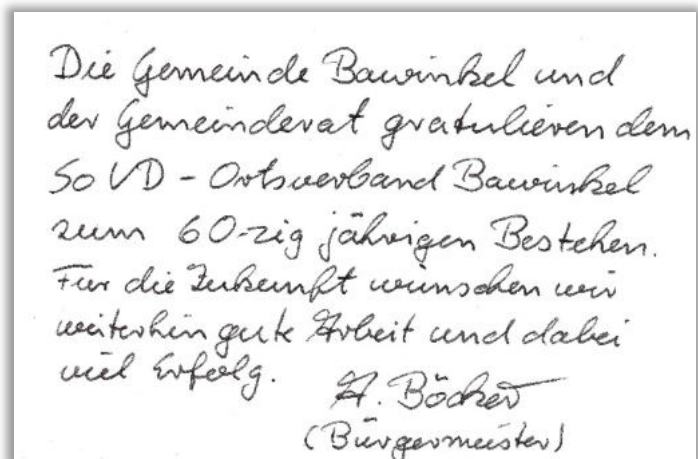 Die Gemeinde Bawinkel und
der Gemeinderat gratulieren dem
SoVD - Ortsverband Bawinkel
zum 60-zig jährigen Bestehen.
Für die Zukunft wünschen wir
weiterhin gute Arbeit und dabei
viel Erfolg.
A. Böcker
(Bürgermeister)